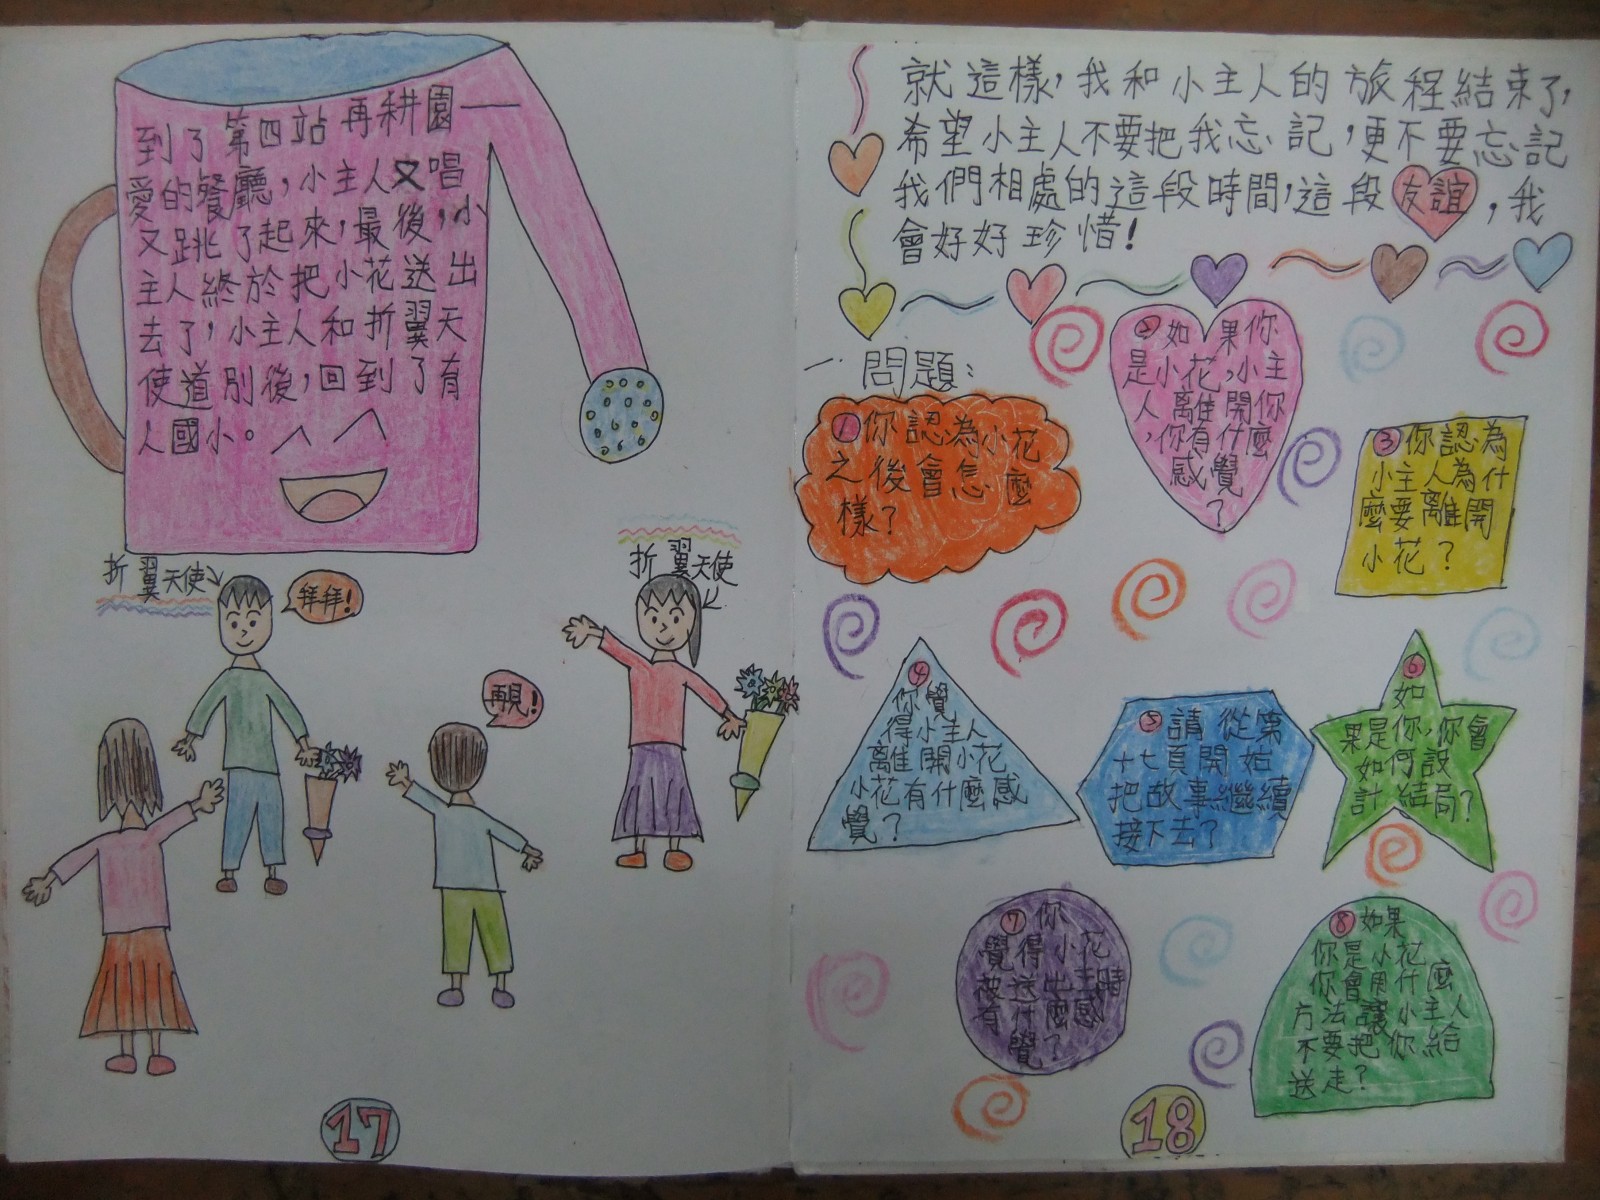 到了第四站再耕園—
愛的餐廳，小主人又唱
又跳了起來，最後，小
主人終於把小花送出
去了，小主人和折翼天
使道別後，回到了有
人國小。
折翼天使
拜拜!
折翼天使
再見!
17
就這樣，我和小主人的旅程結束了，
希望小主人不要把我忘記，更不要忘記
我們相處的這段時間，這段友誼，我
會好好珍惜!
一問題：
①你認為小花
之後會怎麼
樣?
②如果你
是小花，小主
人離開你
，你有什麼
感覺
?
③你認為
小主人為什
麼要離開
小花?
④
你覺
得小主人
離開小花
小花有什麼感
覺?
⑤請從第
十七頁開始
把故事繼續
接下去?
⑥
如
果是你，你會
如何設
計結局?
⑦你
覺得小花
被送出去時
有什麼感
覺?
⑧如果
你是小花
你會用什麼
方法讓小主人
不要把你給
送走?
18